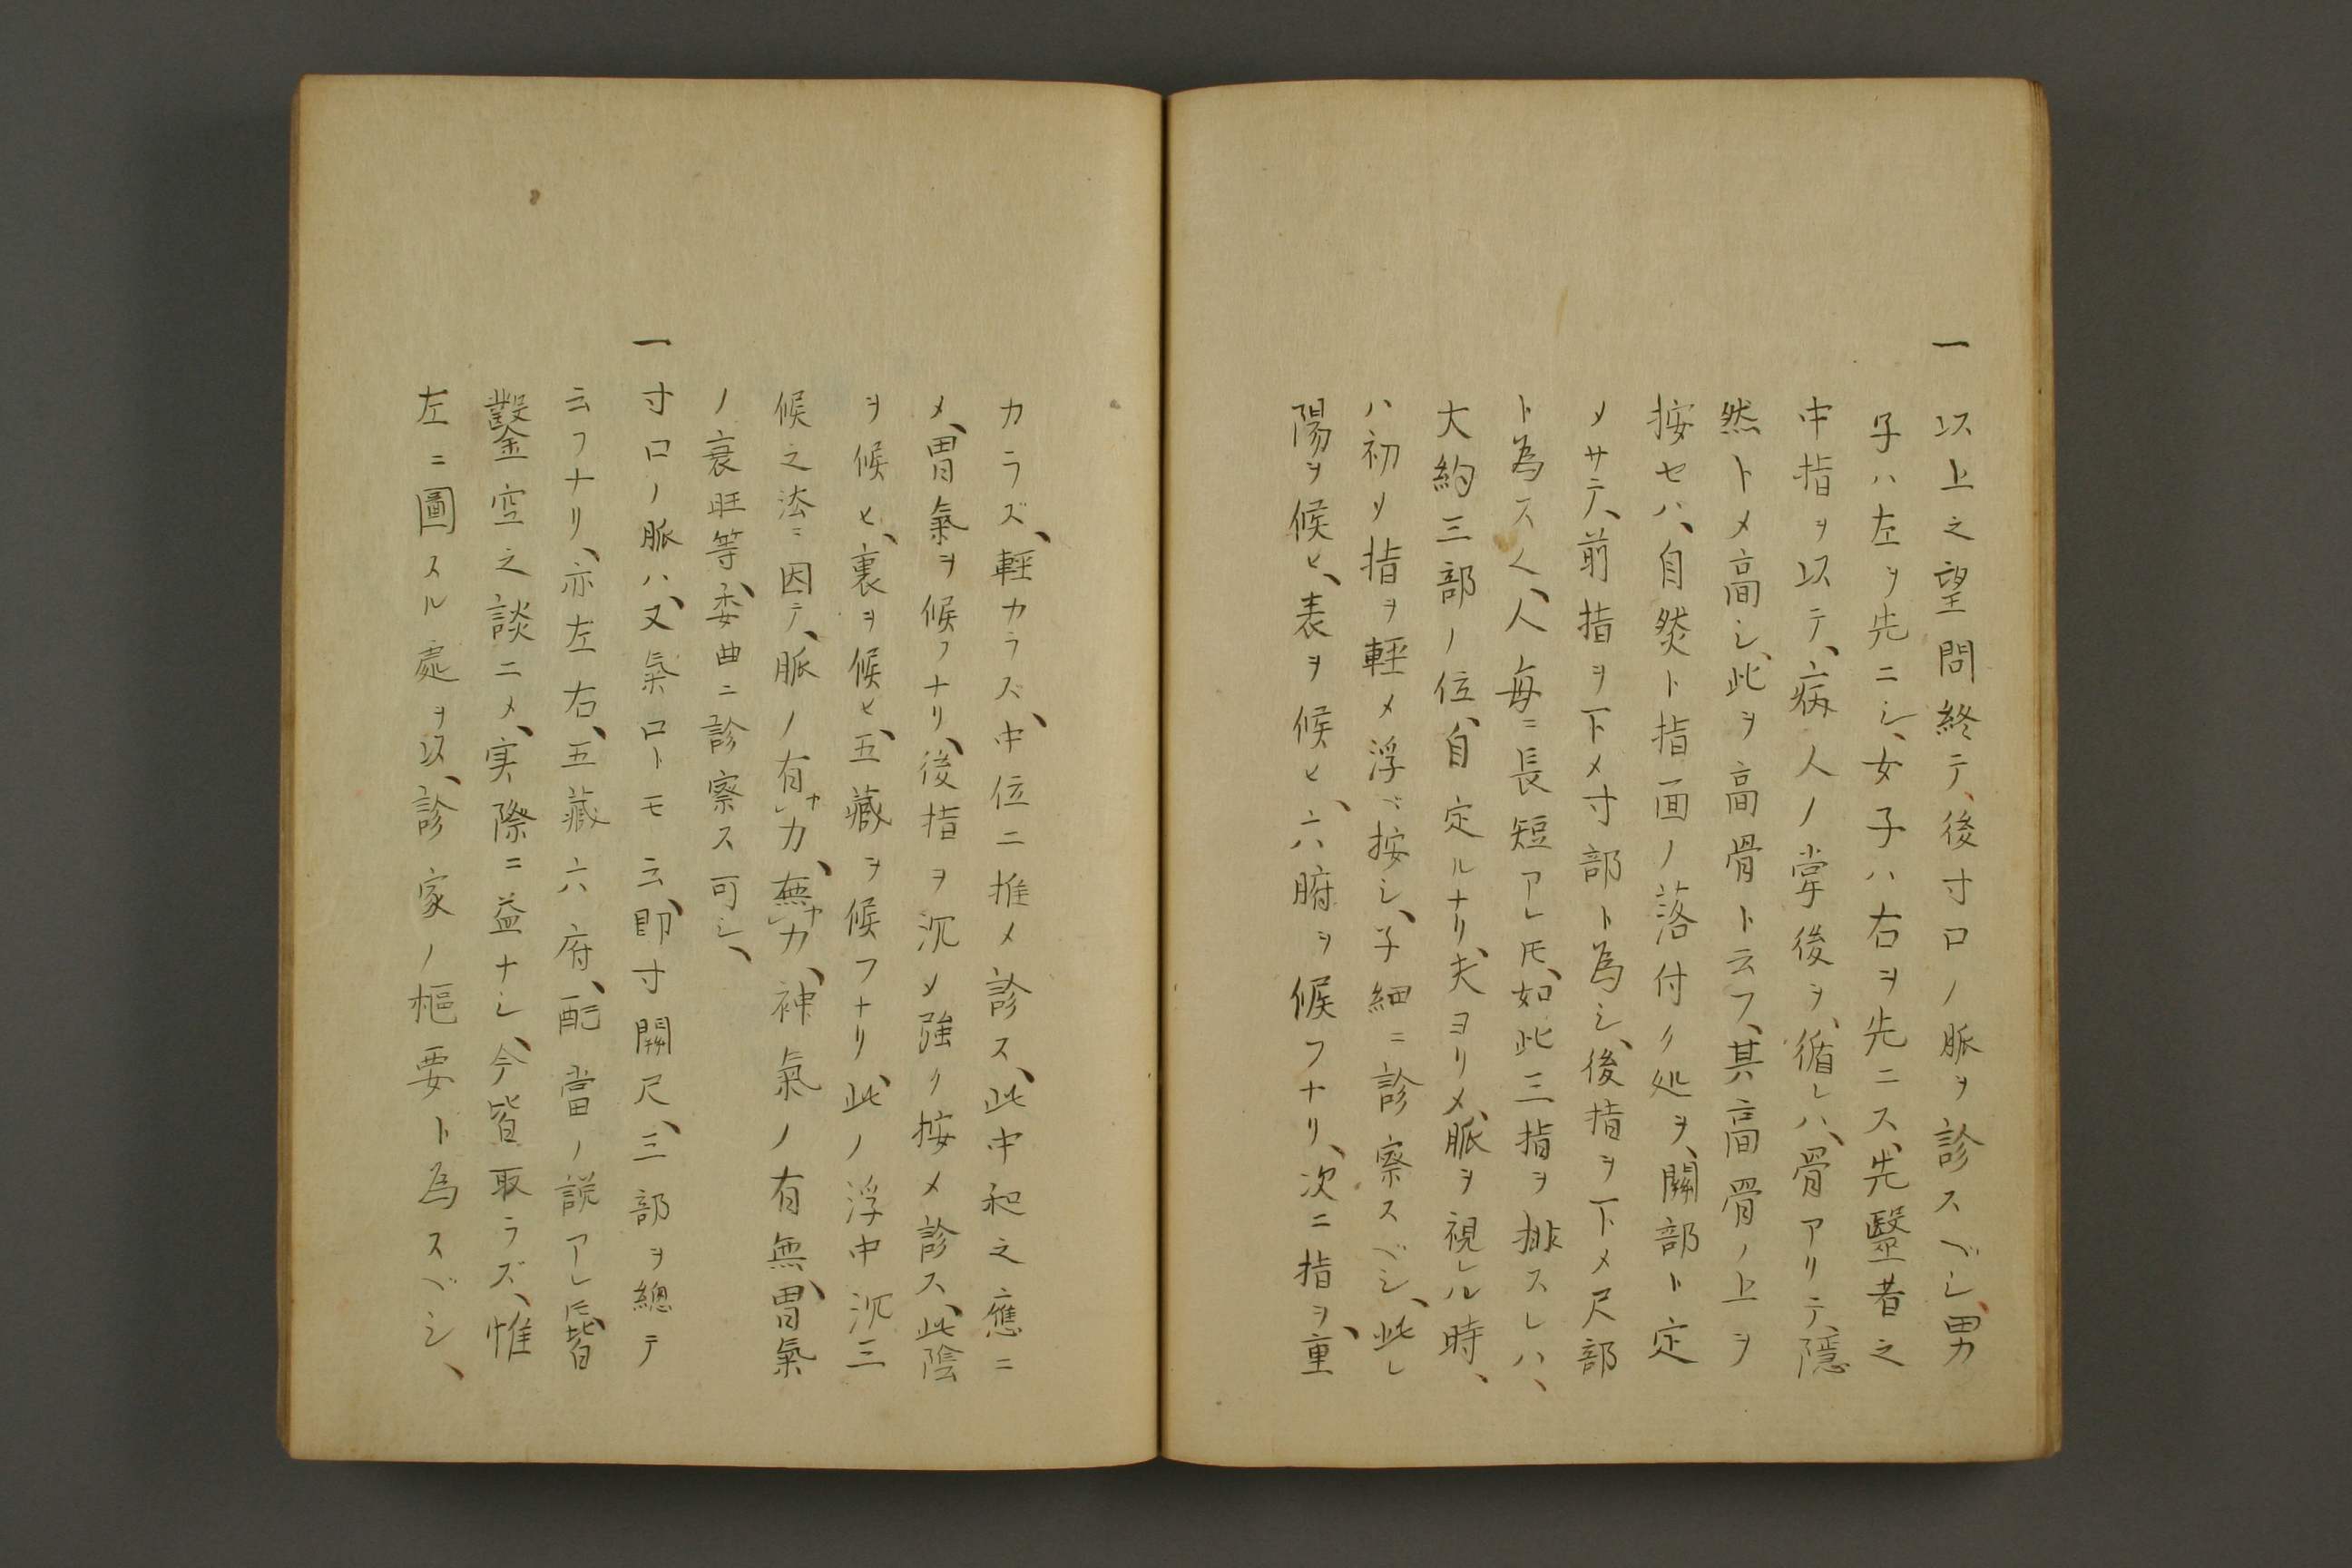 一以上之望問終テ、後寸口ノ脈ヲ診スベシ、男
子ハ左ヲ先ニシ、女子ハ右ヲ先ニス、先醫者之
中指ヲ以テ、病人ノ掌後ヲ、循レハ、骨アリテ、隱
然トメ高シ、此ヲ高骨ト云フ、其高骨ノ上ヲ
按セハ、自然ト指面ノ落付ク処ヲ、關部ト定
メサテ、前指ヲ下メ寸部ト為シ、後指ヲ下メ尺部
ト為スく、人毎ニ長短アレ𪜈、如此三指ヲ排スレハ、
大約三部ノ位、自定ルナリ、夫ヨリメ、脈ヲ視ル時、
ハ初メ指ヲ輕メ浮ベ按シ、子細ニ診察スベシ、此レ
陽ヲ候ヒ、表ヲ候ヒ、六腑ヲ候フナリ、次ニ指ヲ、重
カラズ、輕カラズ、中位ニ推メ診ス、此中和之應ニ
メ、胃氣ヲ候フナリ、後指ヲ沉メ強ク按メ診ス、此陰
ヲ候ヒ、裏ヲ候ヒ、五藏ヲ候フナリ、此ノ浮中沉三
候之法ニ因テ、脈ノ有レ力、無レ力、神氣ノ有無、胃氣
ノ衰旺等、委曲ニ診察ス可シ、
一寸口ノ脈ハ、又氣口トモ云、即寸關尺、三部ヲ總テ
云フナリ、亦左右、五藏六府、配當ノ説アレ𪜈、皆
鑿空之談ニメ、実際ニ益ナシ、今皆取ラズ、惟
左ニ圖スル處ヲ以、診家ノ樞要ト為スベシ、